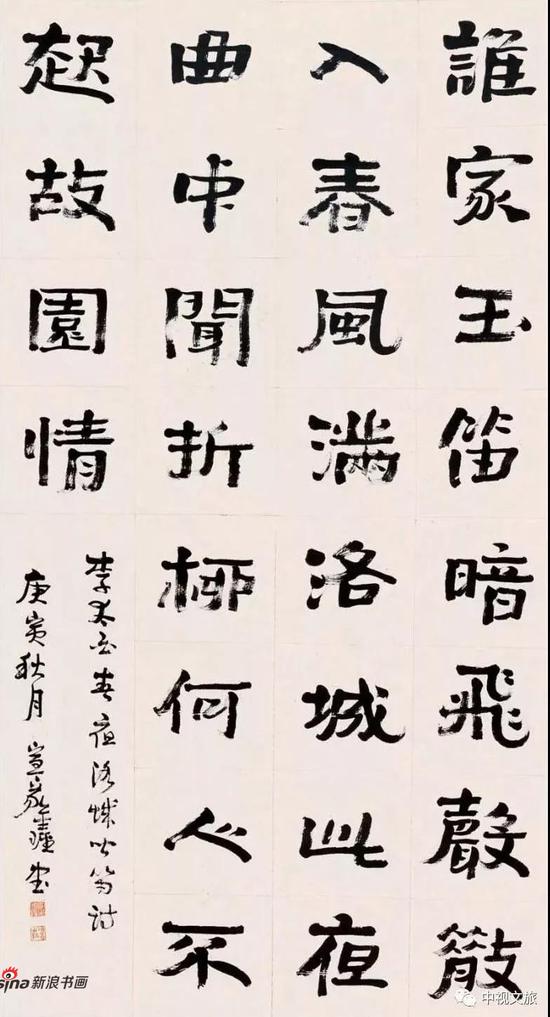 誰家玉笛暗飛聲散
入春風滿洛城此夜
曲中聞折柳何人不
起故園情
李太白春夜洛城聞笛詩
庚寅秋月 宣家鑫書
sina新浪书画
中视文旅